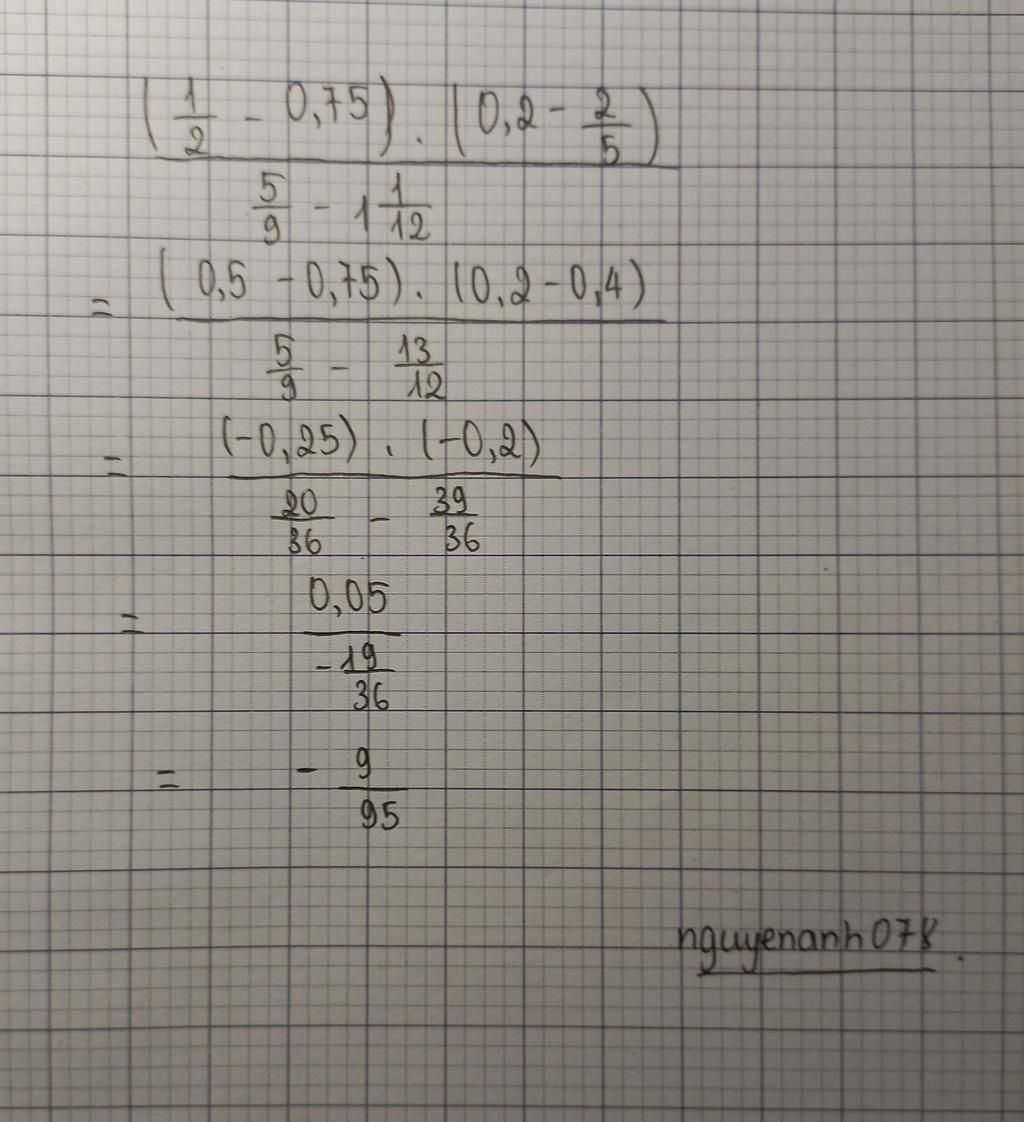 (1/2 - 0,75) . (0,2 - 2/5)
5/9 - 1 1/12
= (0,5 - 0,75) . (0,2 - 0,4)
5/9 - 13/12
= (-0,25) . (-0,2)
20/36 - 39/36
= 0,05
-19/36
= - 9/95
nguyenanh078.